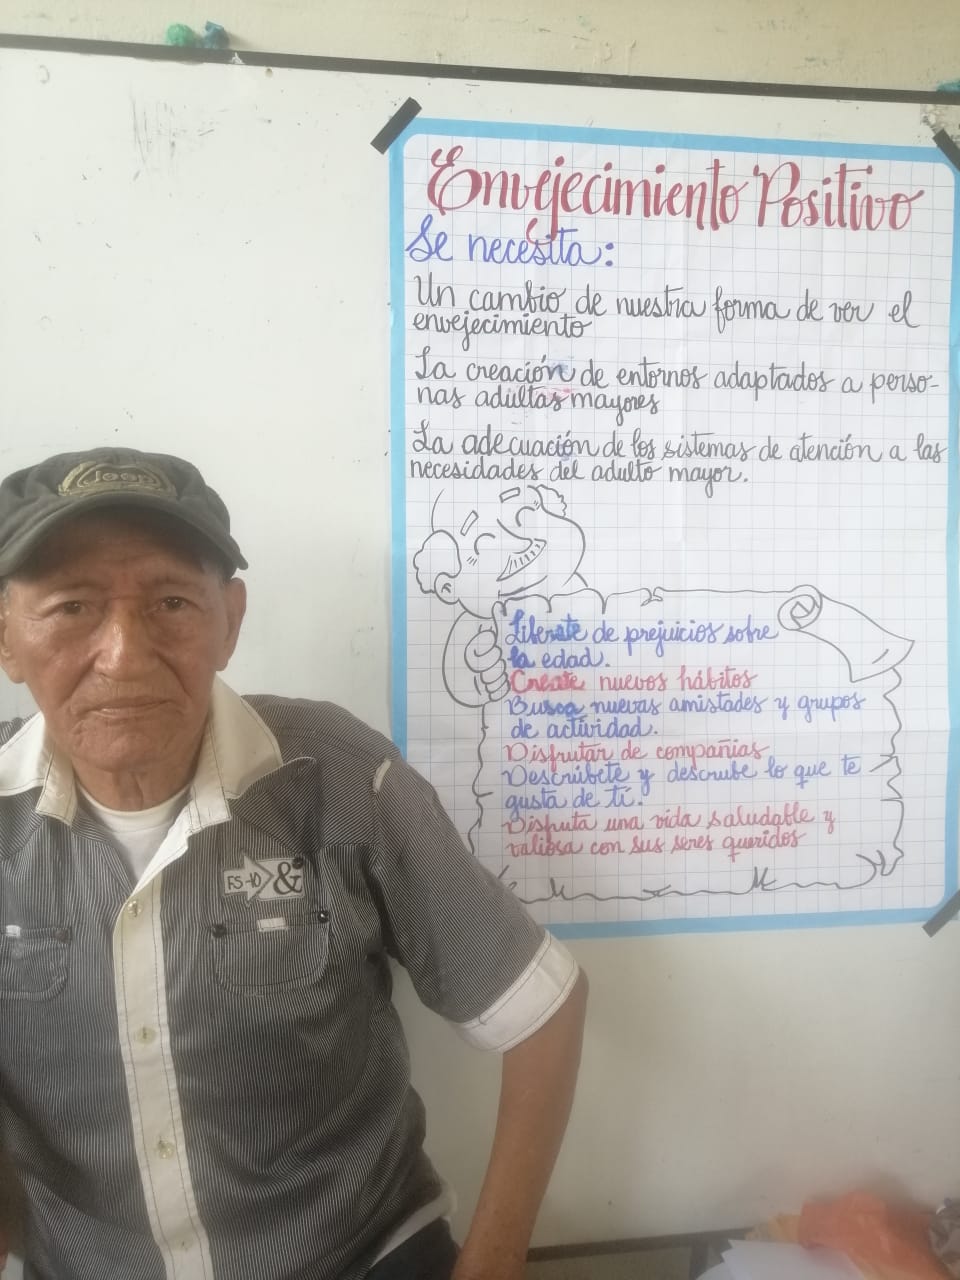 Jeep
Envejecimiento Positivo
Se necesita:
Un cambio de nuestra forma de ver el
envejecimiento
La creación de entornos adaptados a perso-
nas adultas mayores
La adecuación de los sistemas de atención a las
necesidades del adulto mayor.
Liberate de prejuicios sobre
la edad.
Create nuevos hábitos
Busca nuevas amistades y grupos
de actividad.
Disfrutar de compañias
Descrúbete y descrube lo que te
gusta de tí.
Disfruta una vida saludable y
valiosa con sus seres queridos
FS-10 &